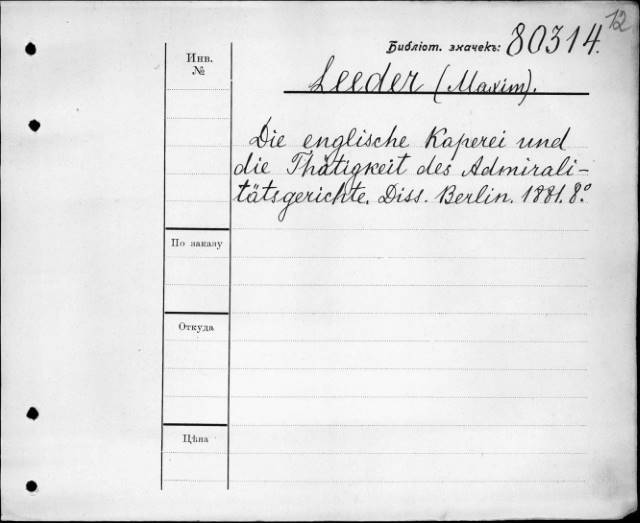 12
Библіот. значекъ: 80314.
Инв.
№
Leeder (Maxim).
Die englische Kaperei und
die Thätigkeit des Admirali-
tätsgerichte. Diss. Berlin. 1881. 8.°
По заказу
Откуда
Цѣна